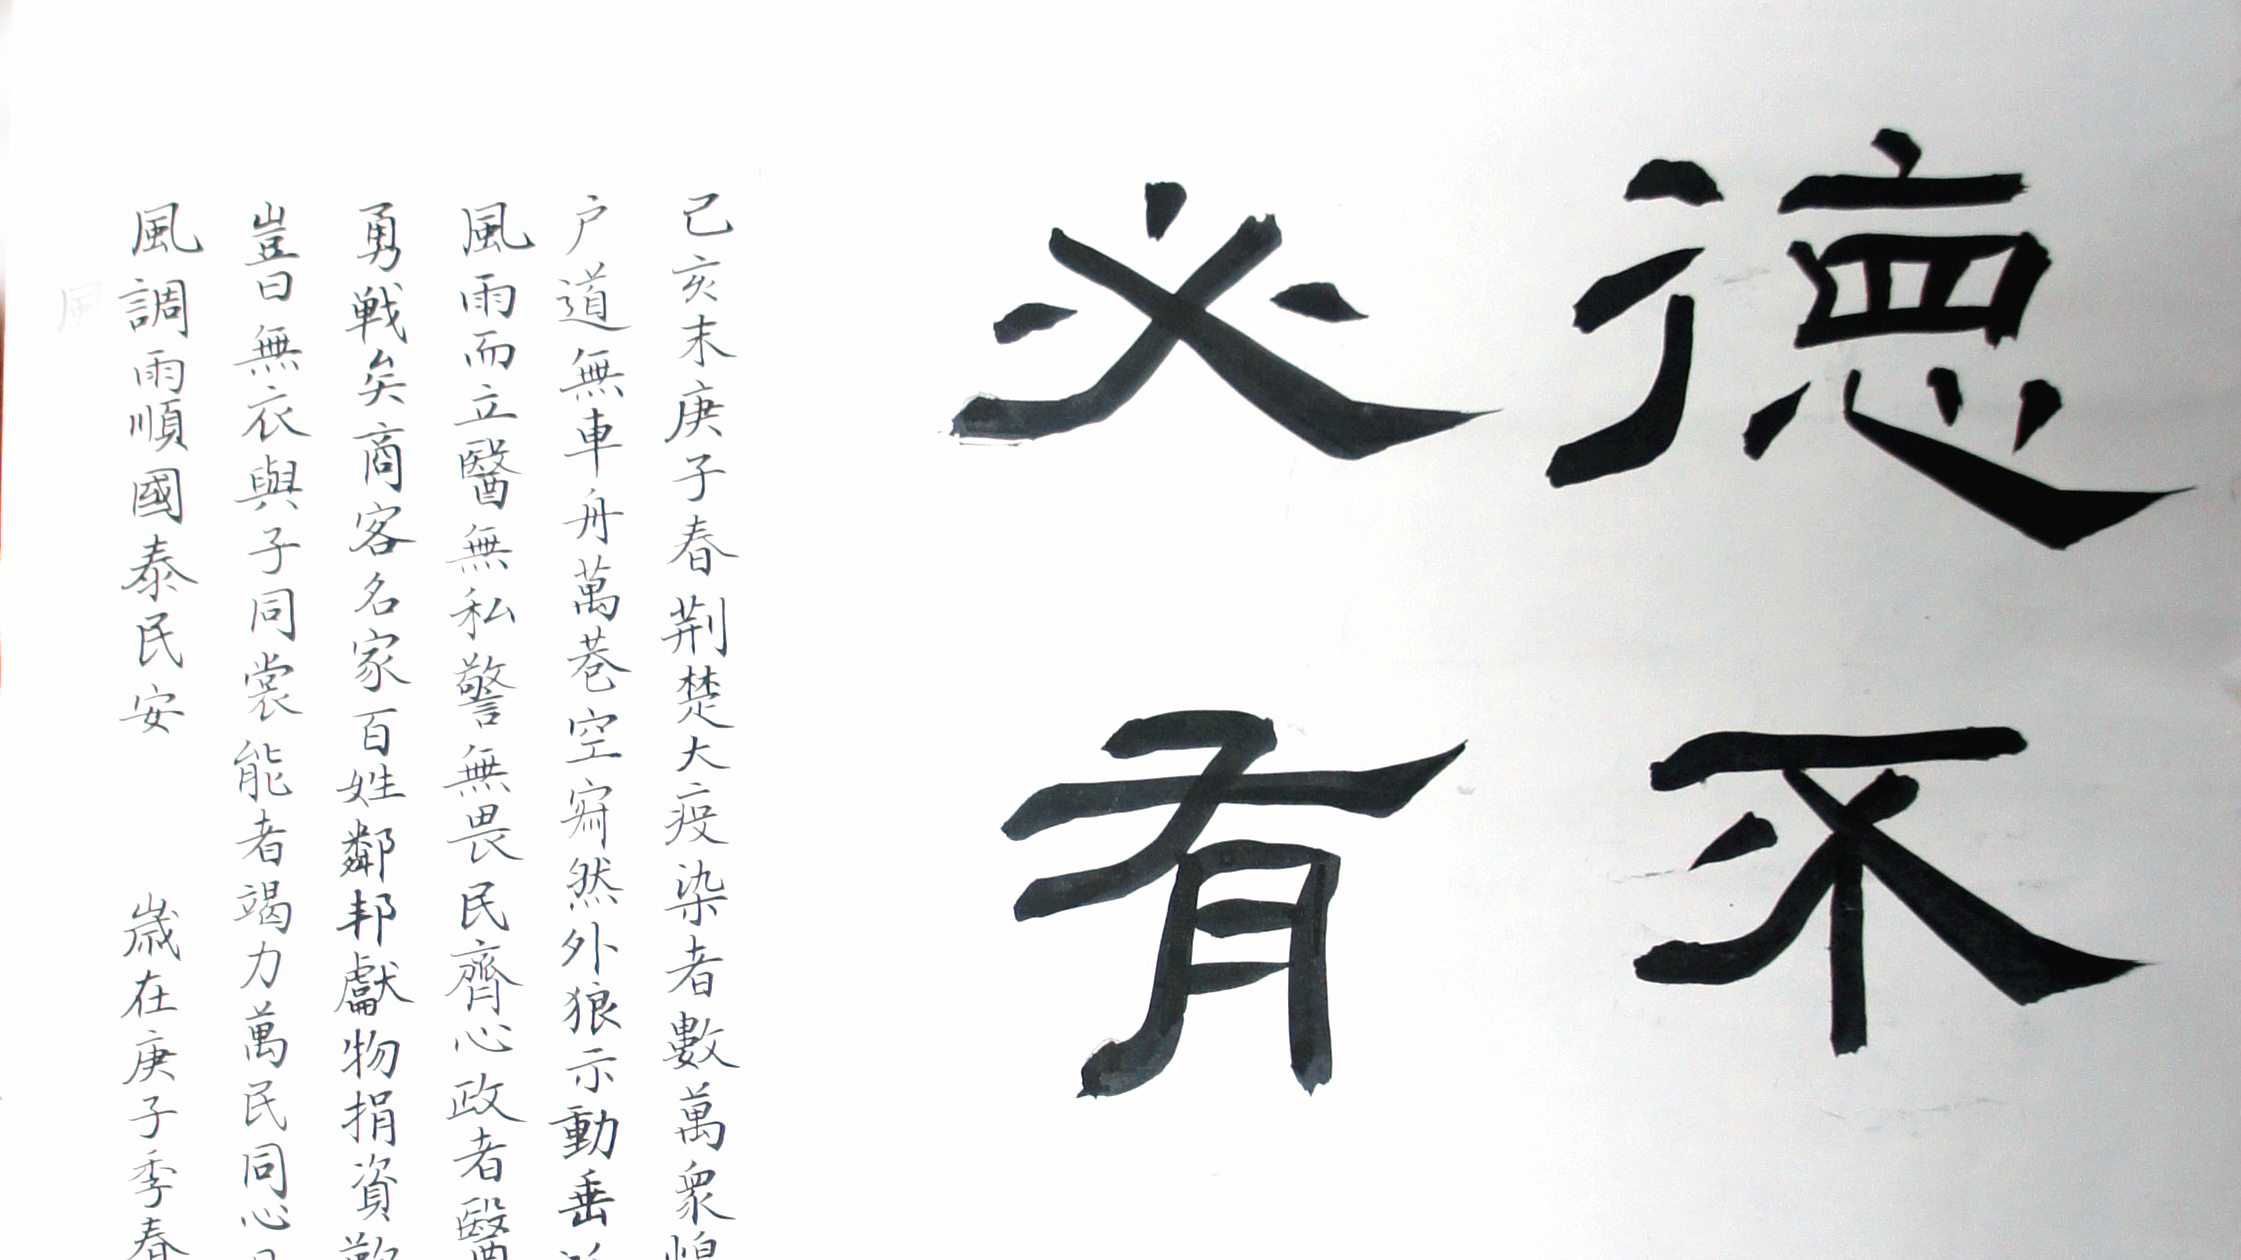 德不
必有
己亥末庚子春荆楚大疫染者數萬衆惶
户道無車舟萬巷空寂然外狼示動垂
風雨而立醫無私警無畏民齊心政者醫
勇戰矣商客名家百姓鄰邦獻物捐資歡
豈曰無衣與子同裳能者竭力萬民同心
風調雨順國泰民安 歲在庚子季春
風